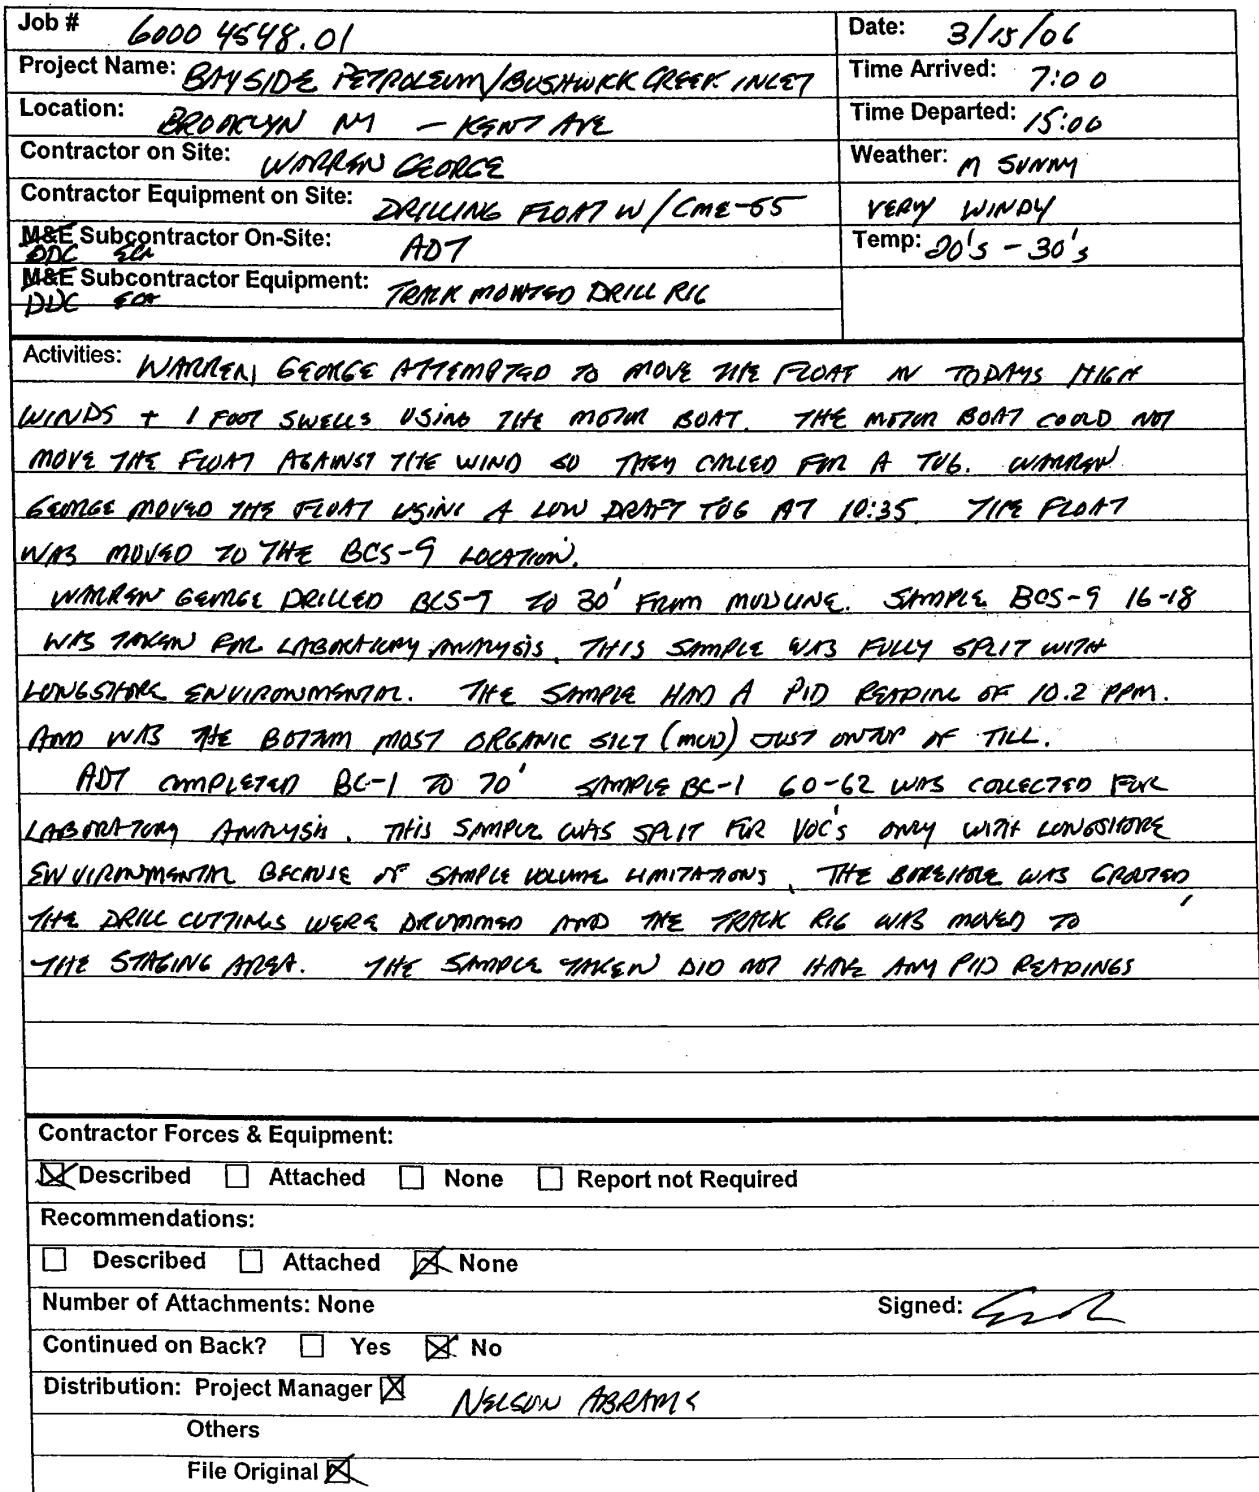 Job # 6000 4548.01 Date: 3/15/06
Project Name: BAYSIDE PETROLEUM/BUSHWICK CREEK INLET Time Arrived: 7:00
Location: BROOKLYN NY - KENT AVE Time Departed: 15:00
Contractor on Site: WARREN GEORGE Weather: M SUNNY
Contractor Equipment on Site: DRILLING FLOAT W/CME-55 VERY WINDY
M&E Subcontractor On-Site: ADT Temp: 20's - 30's
DDC
M&E Subcontractor Equipment: TRACK MOUNTED DRILL RIG
DDC
Activities: WARREN GEORGE ATTEMPTED TO MOVE THE FLOAT IN TODAYS HIGH
WINDS + 1 FOOT SWELLS USING THE MOTOR BOAT. THE MOTOR BOAT COULD NOT
MOVE THE FLOAT AGAINST THE WIND SO THEY CALLED FOR A TUG. WARREN
GEORGE MOVED THE FLOAT USING A LOW DRAFT TUG AT 10:35. THE FLOAT
WAS MOVED TO THE BCS-9 LOCATION.
WARREN GEORGE DRILLED BCS-9 TO 30' FROM MUDLINE. SAMPLE BCS-9 16-18
WAS TAKEN FOR LABORATORY ANALYSIS. THIS SAMPLE WAS FULLY SPLIT WITH
LONGSHORE ENVIRONMENTAL. THE SAMPLE HAD A PID READING OF 10.2 PPM.
AND WAS THE BOTTOM MOST ORGANIC SILT (MUD) JUST ONTOP OF TILL.
ADT COMPLETED BC-1 TO 70' SAMPLE BC-1 60-62 WAS COLLECTED FOR
LABORATORY ANALYSIS. THIS SAMPLE WAS SPLIT FOR VOC's ONLY WITH LONGSHORE
ENVIRONMENTAL BECAUSE OF SAMPLE VOLUME LIMITATIONS. THE BOREHOLE WAS GROUTED,
THE DRILL CUTTINGS WERE DRUMMED AND THE TRACK RIG WAS MOVED TO
THE STAGING AREA. THE SAMPLE TAKEN DID NOT HAVE ANY PID READINGS
Contractor Forces & Equipment:
Described Attached None Report not Required
Recommendations:
Described Attached None
Number of Attachments: None Signed:
Continued on Back? Yes No
Distribution: Project Manager NELSON ABRAMS
Others
File Original